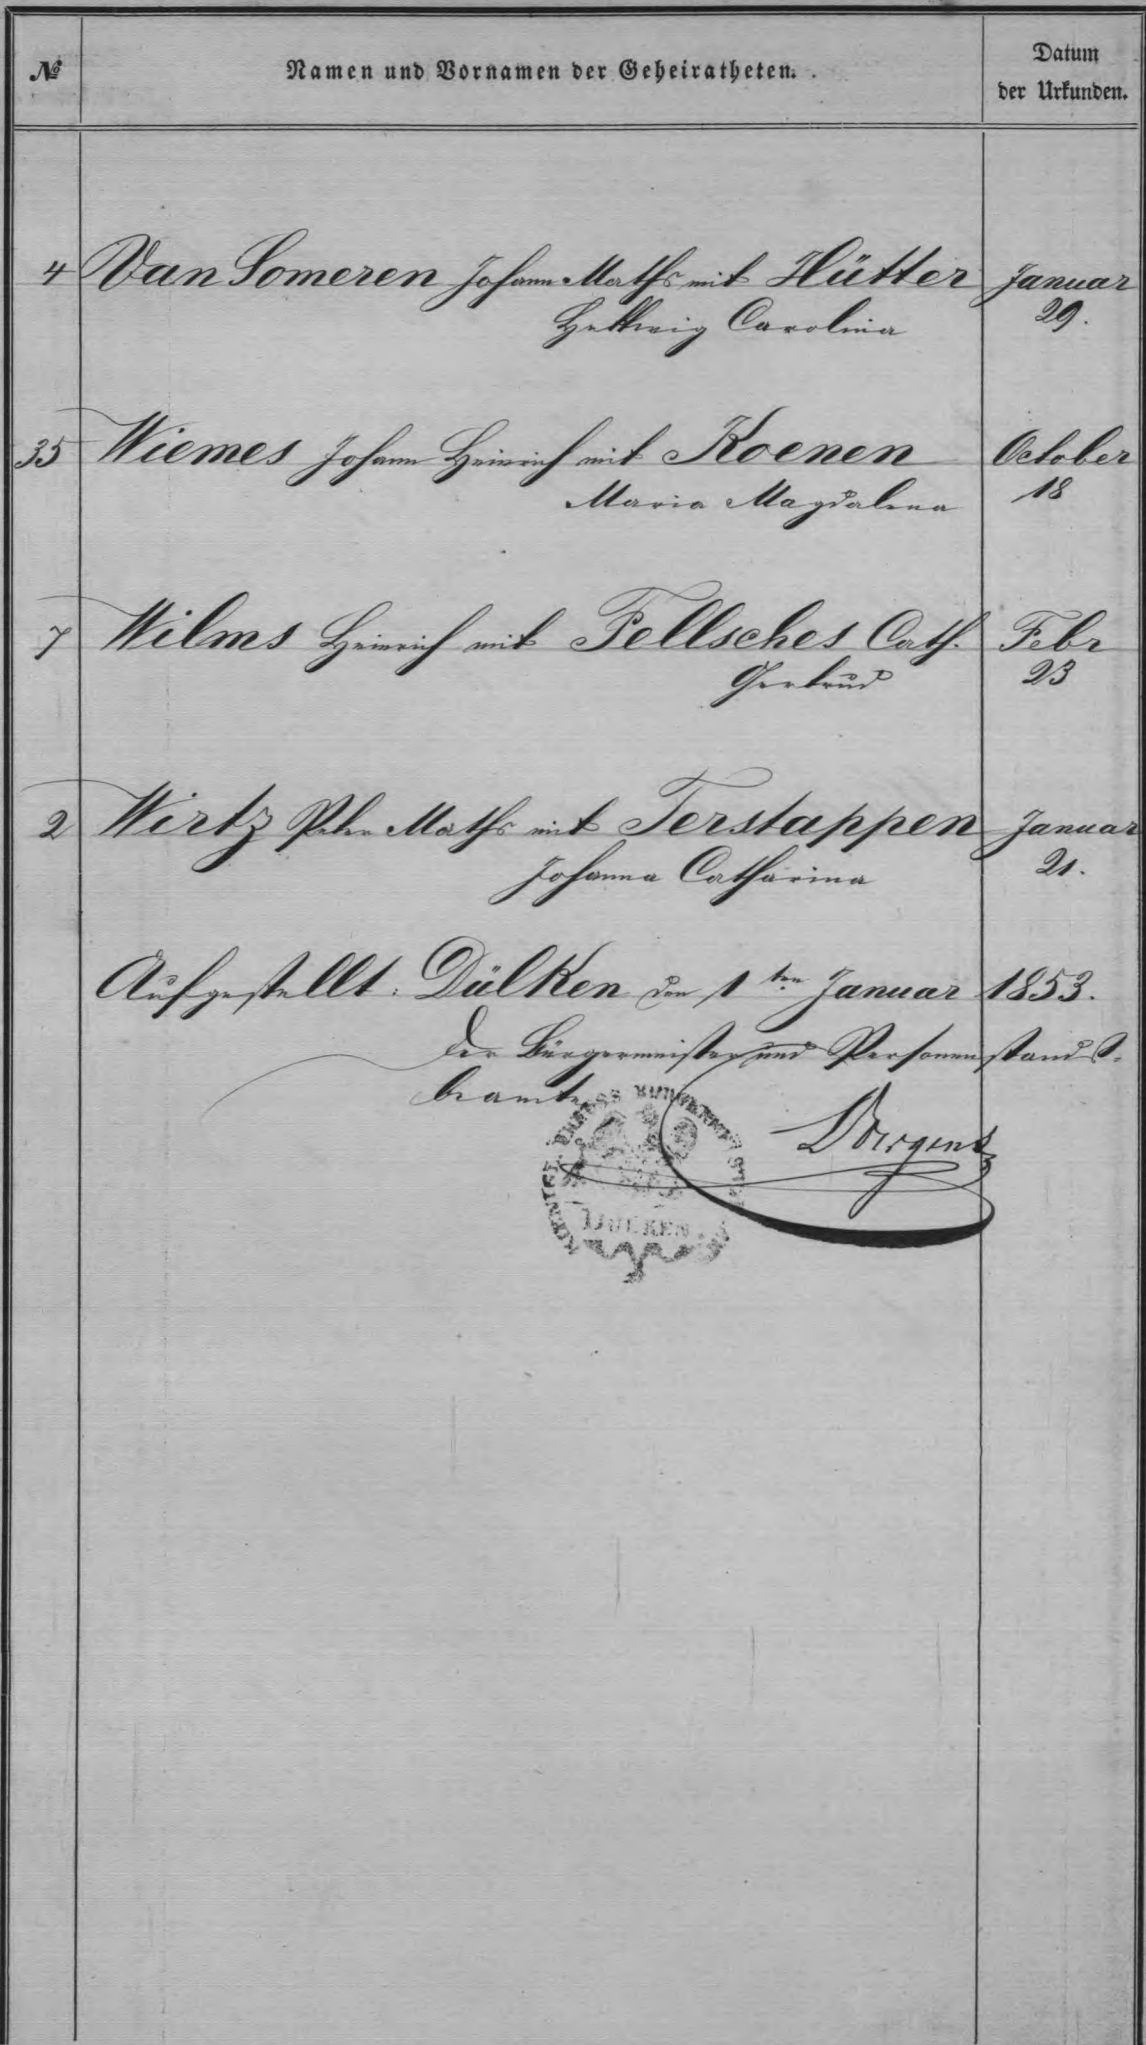 № Namen und Vornamen der Geheiratheten. Datum
der Urkunden.
4 Van Someren Johann Maths mit Hütter Januar
Hedwig Carolina 29.
35 Wiemes Johann Heinrich mit Koenen October
Maria Magdalena 18
7 Wilms Heinrich mit Fellsches Cath. Febr
Gertrud 23
2 Wirtz Peter Maths mit Terstappen Januar
Johanna Catharina 21.
Aufgestellt: Dülken den 1ten Januar 1853.
Der Bürgermeister und Personenstands-
beamte